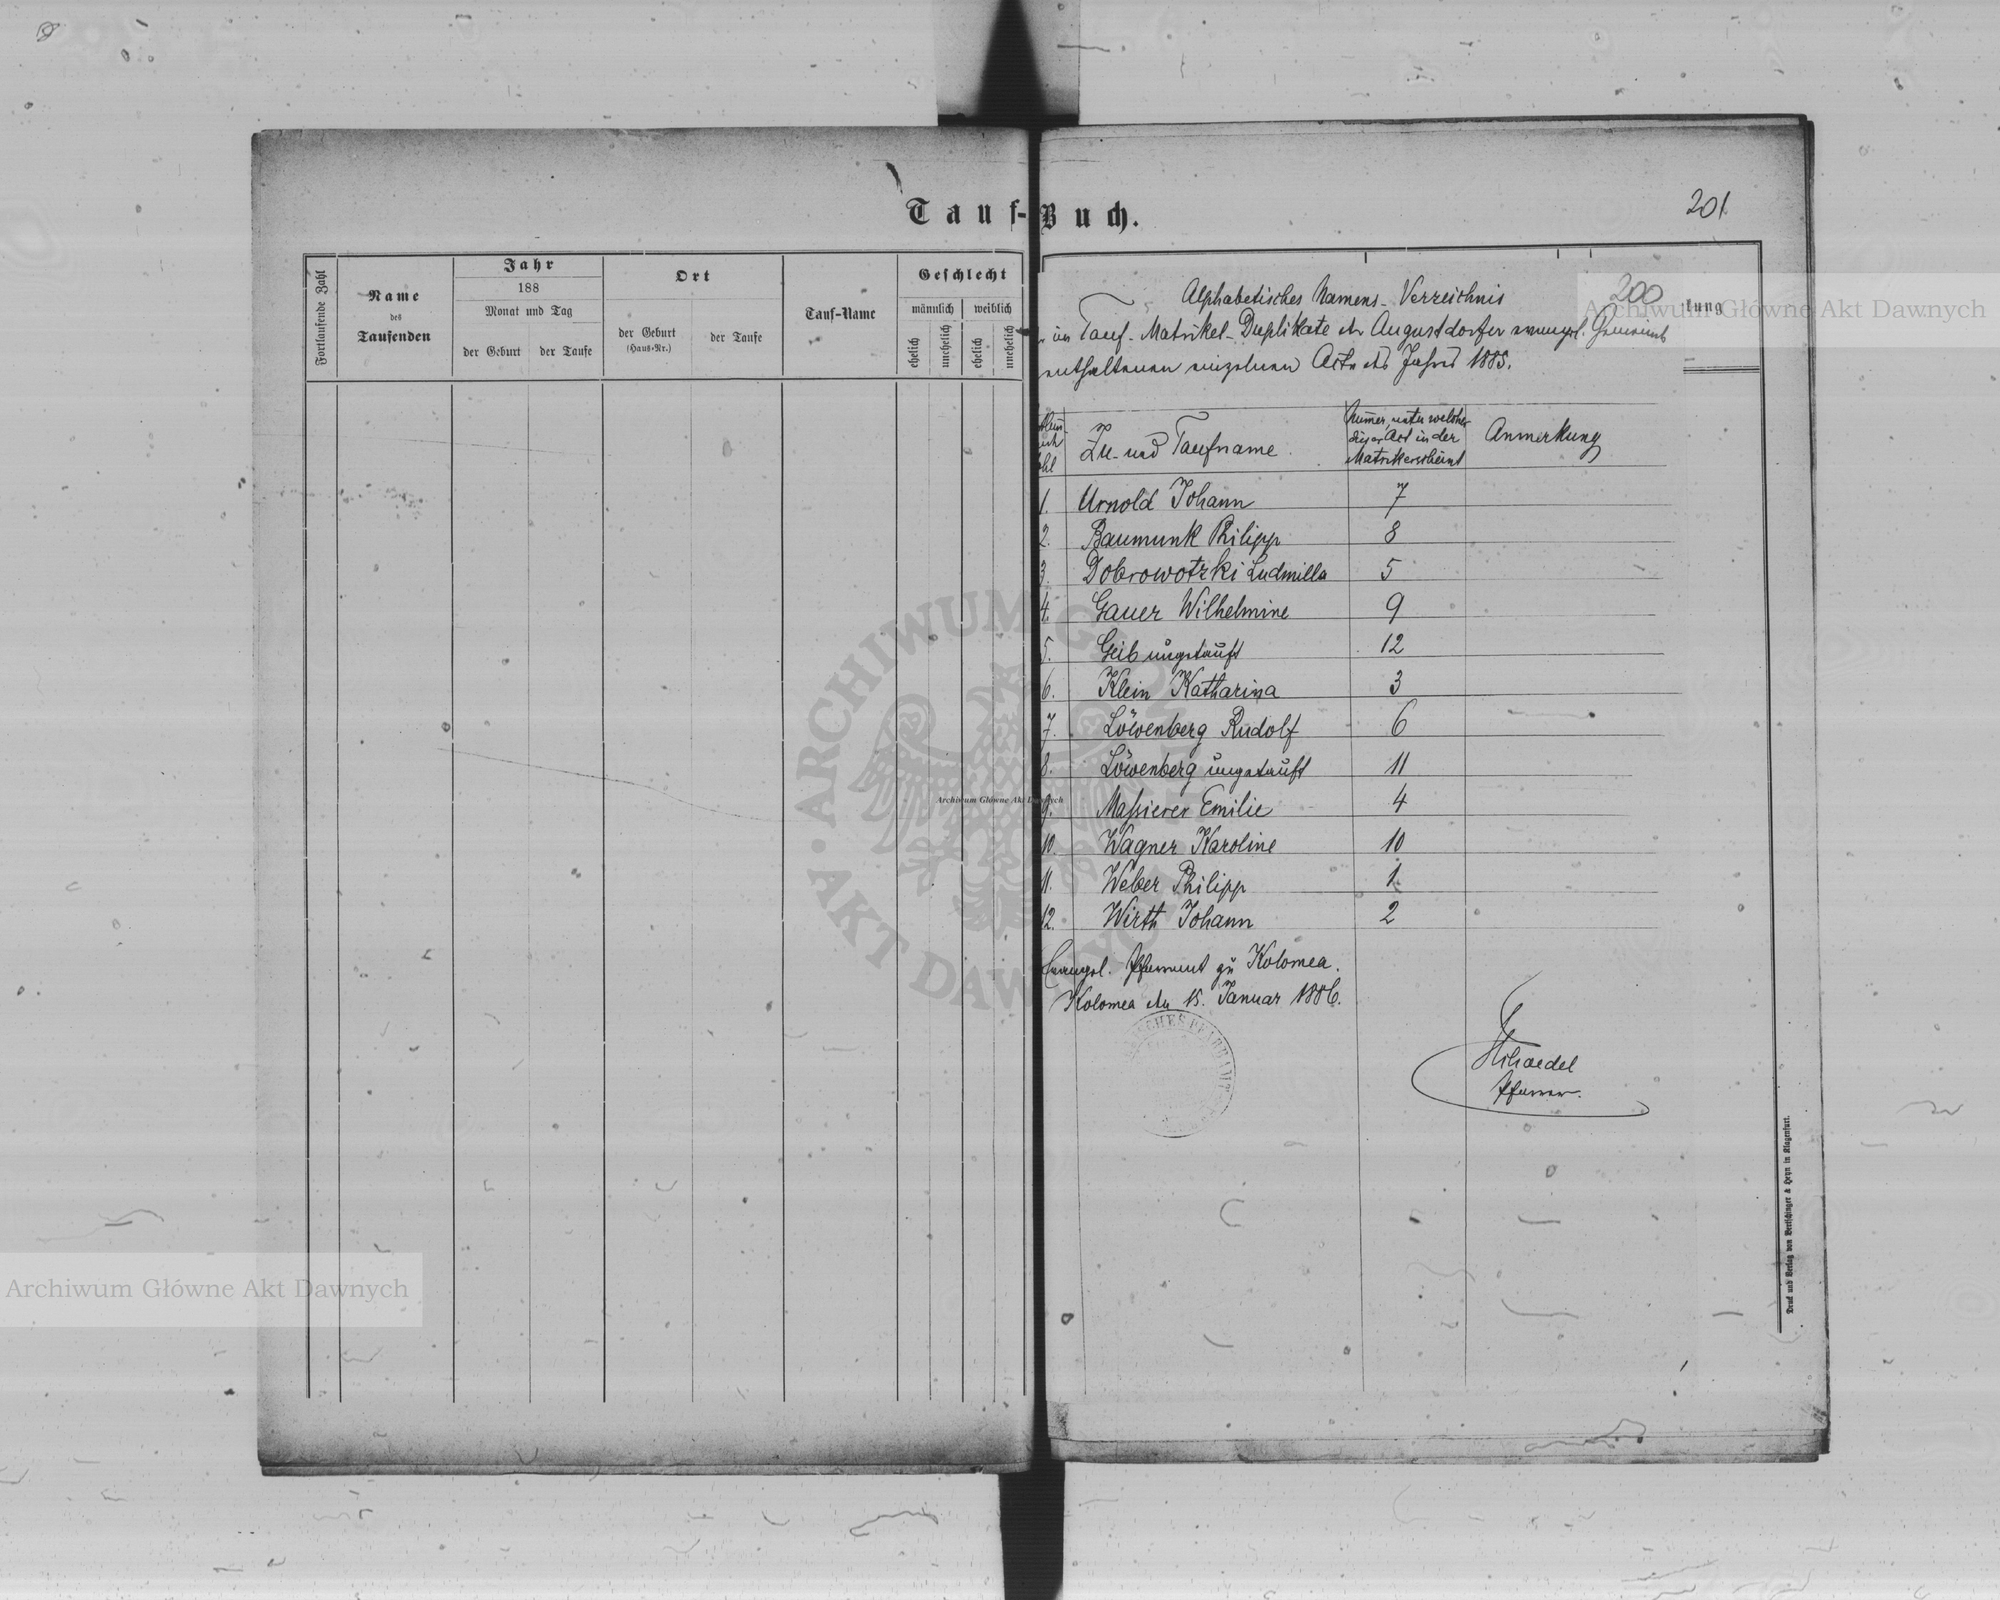 Tauf-Buch.
201
Fortlaufende Zahl
Name
des
Taufenden
Jahr
188
Monat und Tag
der Geburt
der Taufe
Ort
der Geburt
(Haus-Nr.)
der Taufe
Tauf-Name
Geschlecht
männlich
weiblich
ehelich
unehelich
ehelich
unehelich
200
lung
Archiwum Główne Akt Dawnych
Alphabetisches Namens-Verzeichnis
im Tauf-Matrikel-Duplikate der Augustdorfer evangel. Gemeinde
enthaltenen einzelnen Acte des Jahres 1885.
Zu- und Taufname.
Numer, unter welcher
dieser Act in der
Matrik erscheint
Anmerkung
1. Arnold Johann 7
2. Baumunk Philipp 8
3. Dobrowotzki Ludmilla 5
4. Gauer Wilhelmine 9
5. Geib ungetauft 12
6. Klein Katharina 3
7. Löwenberg Rudolf 6
8. Löwenberg ungetauft 11
9. Maßierer Emilie 4
10. Wagner Karoline 10
11. Weber Philipp 1
12. Wirth Johann 2
Evangel. Pfarramt zu Kolomea.
Kolomea den 15. Januar 1886.
Pfarrer.
Druck und Verlag von Bertschinger & Heyn in Klagenfurt.
ARCHIWUM GŁÓWNE AKT DAWNYCH
Archiwum Główne Akt Dawnych
Archiwum Główne Akt Dawnych